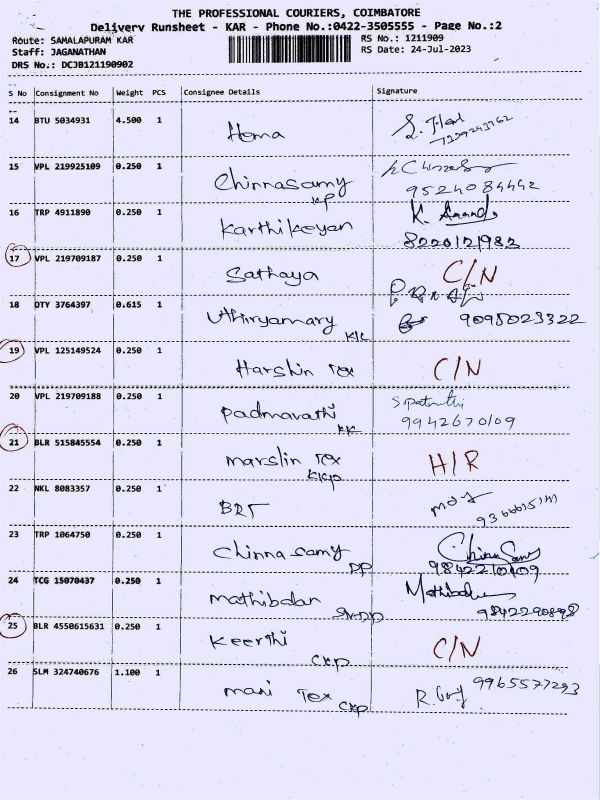 THE PROFESSIONAL COURIERS, COIMBATORE
Delivery Runsheet - KAR - Phone No.:0422-3505555 - Page No.:2
Route: SAMALAPURAM KAR RS No.: 1211909
Staff: JAGANATHAN RS Date: 24-Jul-2023
DRS No.: DCJB121190902
S No Consignment No Weight PCS Consignee Details Signature
14 BTU 5034931 4.500 1 Hema
15 VPL 219925109 0.250 1 Chinnasamy
KP 9524084442
16 TRP 4911890 0.250 1 Karthikeyan K. Anand
8220121982
17 VPL 219709187 0.250 1 Sathaya C/N
18 OTY 3764397 0.615 1 Uthiryamary 9095023322
19 VPL 125149524 0.250 1 Harshin Tex C/N
20 VPL 219709188 0.250 1 Padmavathi
KK 9942670109
21 BLR 515845554 0.250 1 Marslin Tex H/R
KKP
22 NKL 8083357 0.250 1 BRT
23 TRP 1064750 0.250 1 Chinna samy
PP 9842210409
24 TCG 15070437 0.250 1 Mathibalan Mathibalan
9842290898
25 BLR 4550615631 0.250 1 Keerthi C/N
CKP
26 SLM 324740676 1.100 1 Mani Tex 9965577293
CKP